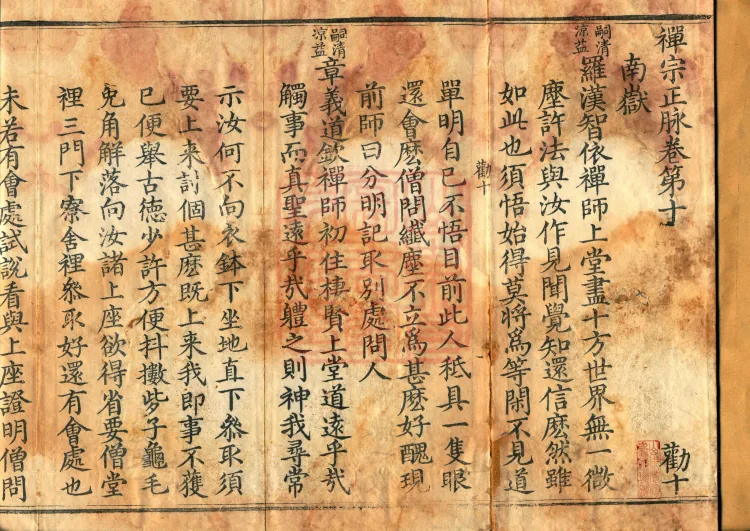 禪宗正脉卷第十
勸十
南嶽
嗣清
涼益
羅漢智依禪師上堂盡十方世界無一微
塵許法與汝作見聞覺知還信麽然雖
如此也須悟始得莫將爲等閑不見道
勸十
單明自己不悟目前此人秪具一隻眼
還會麽僧問纖塵不立爲甚麽好醜現
前師曰分明記取別處問人
嗣清
涼益
章義道欽禪師初住棲賢上堂道遠乎㢤
觸事而真聖遠乎㢤體之則神我尋常
示汝何不向衣鉢下坐地直下叅取須
要上来討個甚麽既上来我即事不獲
巳便舉古德少許方便抖擻些子龜毛
兔角解落向汝諸上座欲得省要僧堂
裡三門下寮舍裡叅取好還有會處也
未若有會處試說看與上座證明僧問